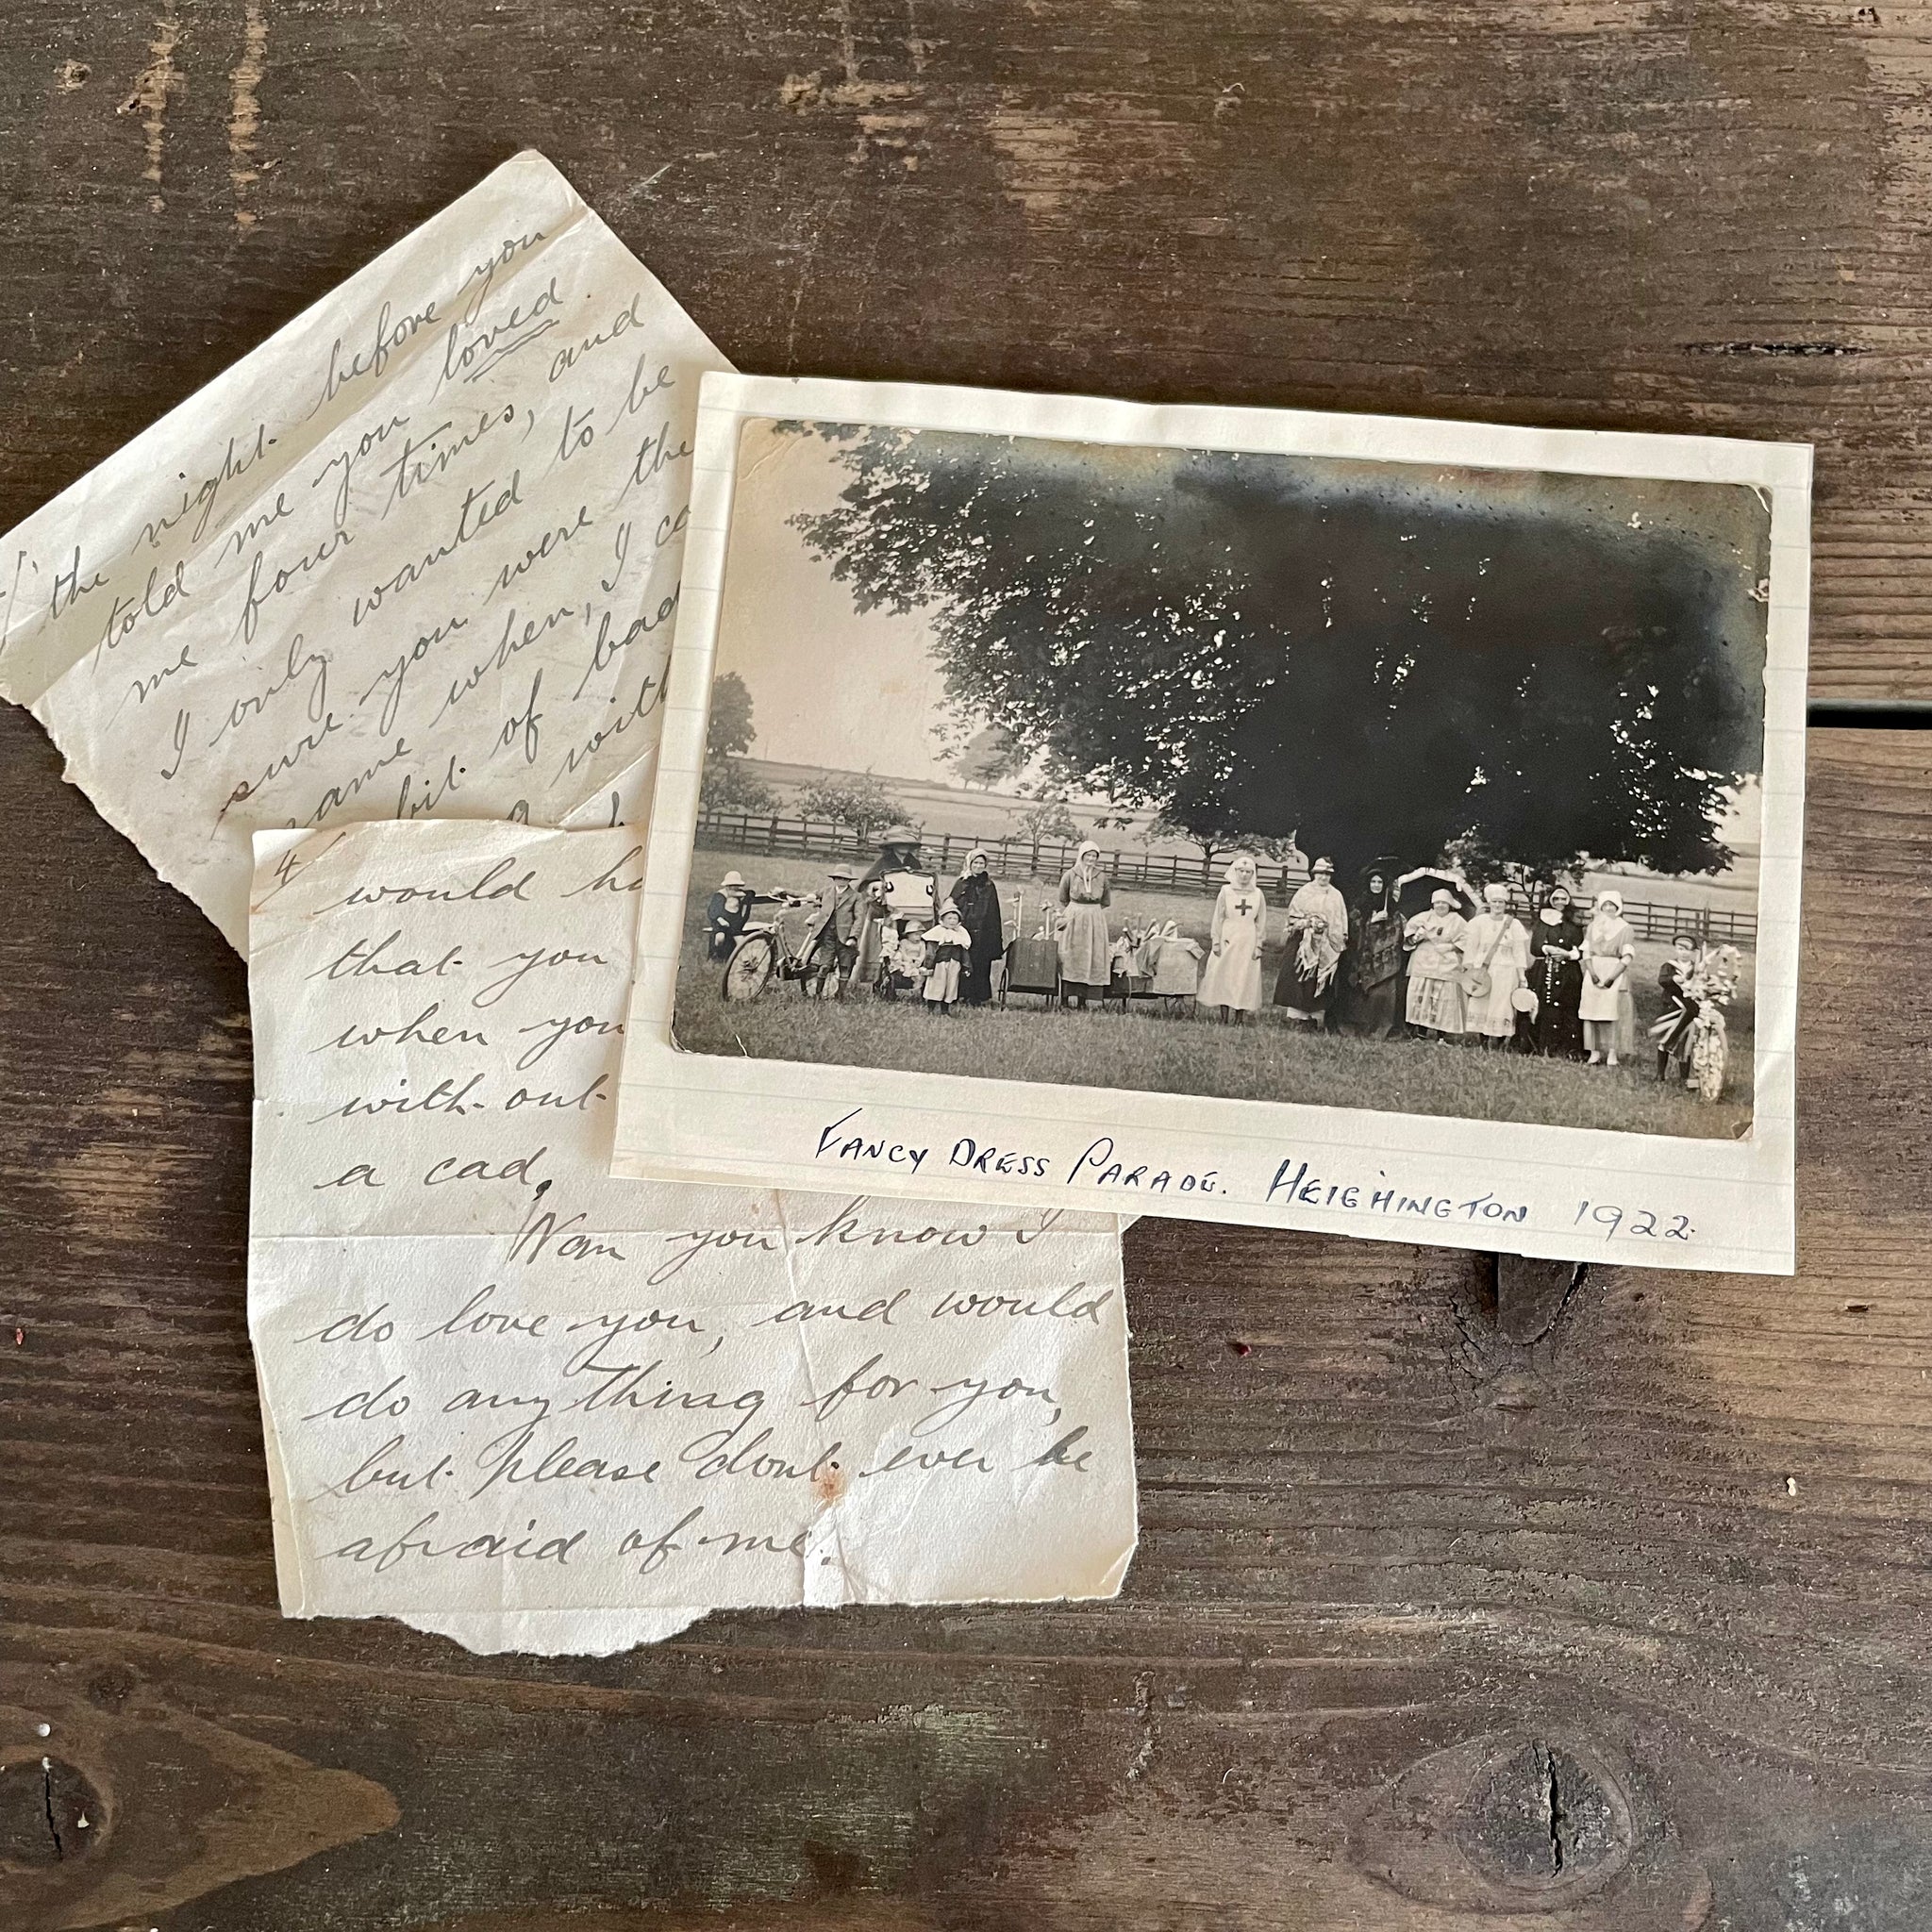 the night. before you
told me you loved
me four times, and
I only wanted to be
sure you were the
same when, I
bit of bad
with
4
would
that you
when you
with out
a cad,
Nom you know I
do love you, and would
do any thing for you,
but please dont ever be
afraid of me.
FANCY DRESS PARADE. HEIGHINGTON 1922.